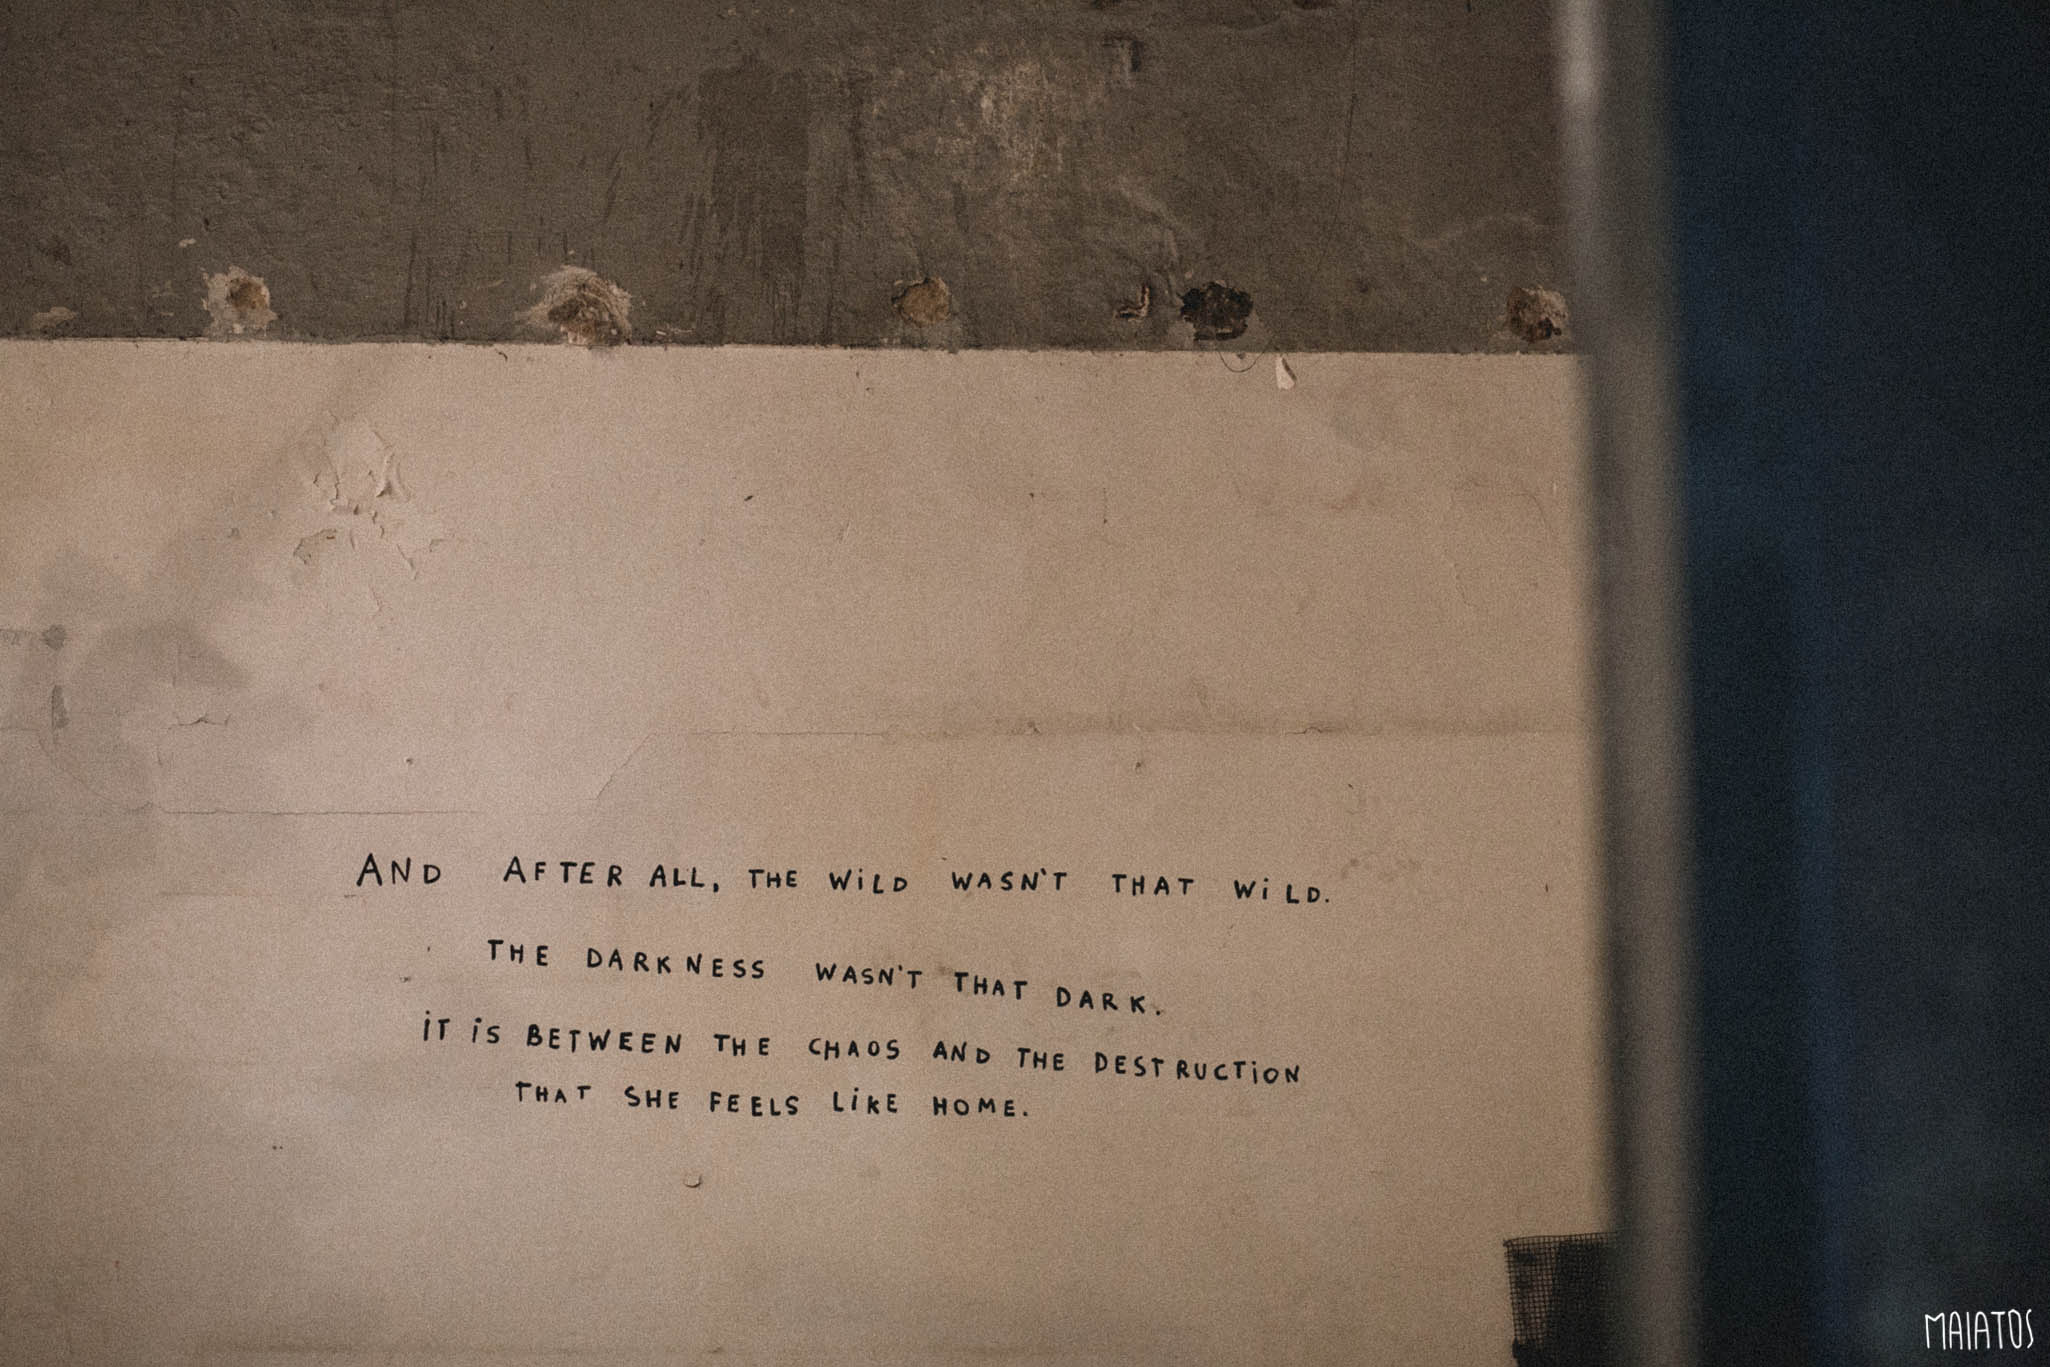 AND AFTER ALL, THE WiLD WASN'T THAT WiLD.
THE DARKNESS WASN'T THAT DARK.
iT iS BETWEEN THE CHAOS AND THE DESTRUCTiON
THAT SHE FEELS LiKE HOME.
MAIATOS